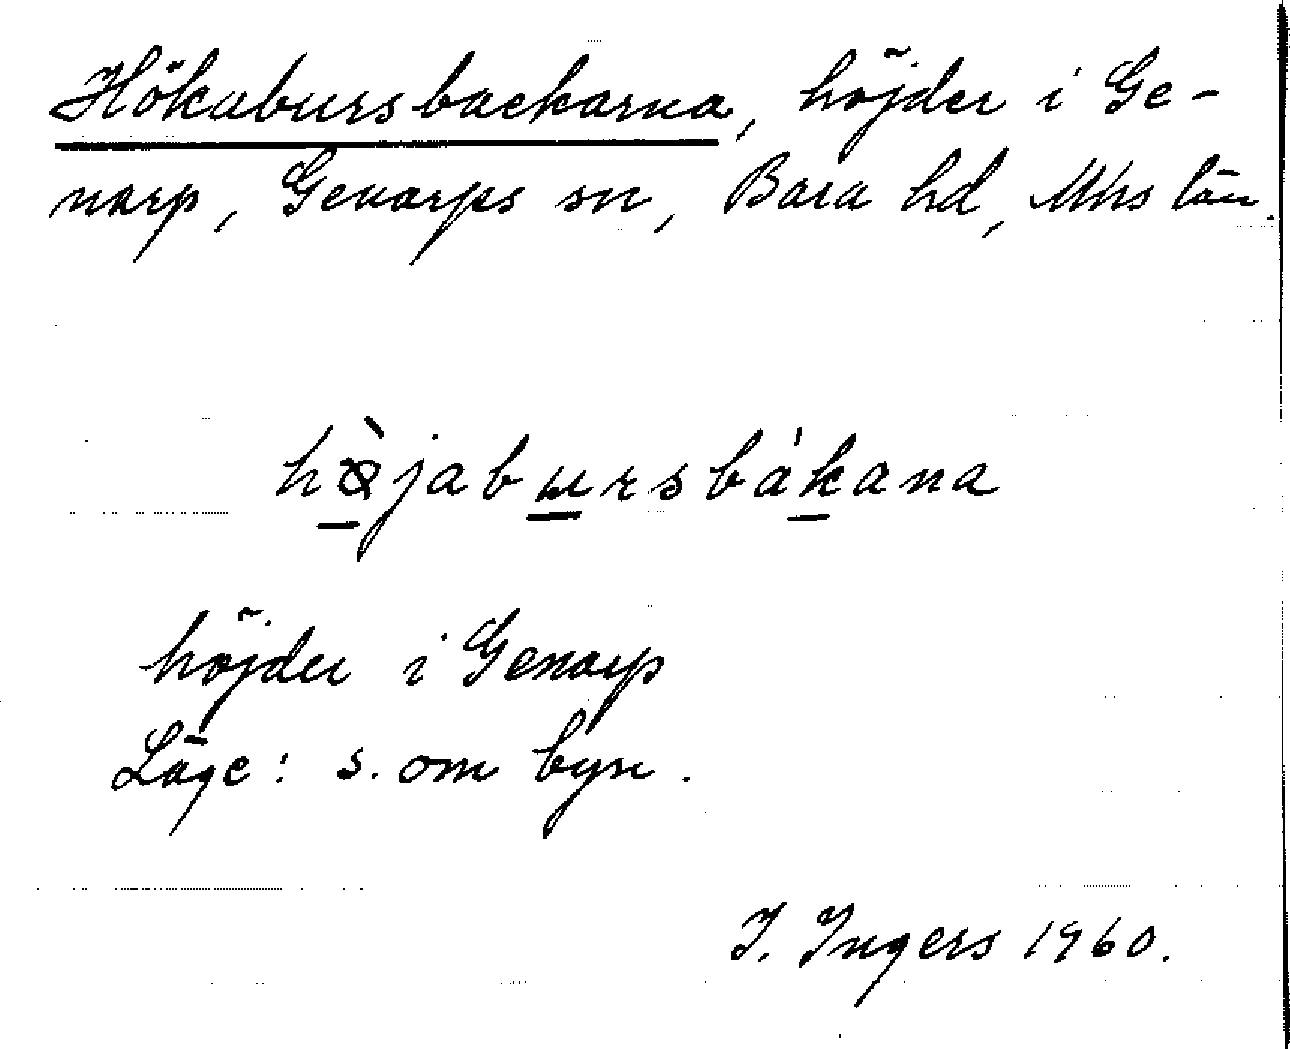 Hökabursbackarna, höjder i Ge-
narp, Genarps sn, Bara hd, Mhs län.
hø̀jabursbákana
höjder i Genarp
Läge: s. om byn.
I. Ingers 1960.